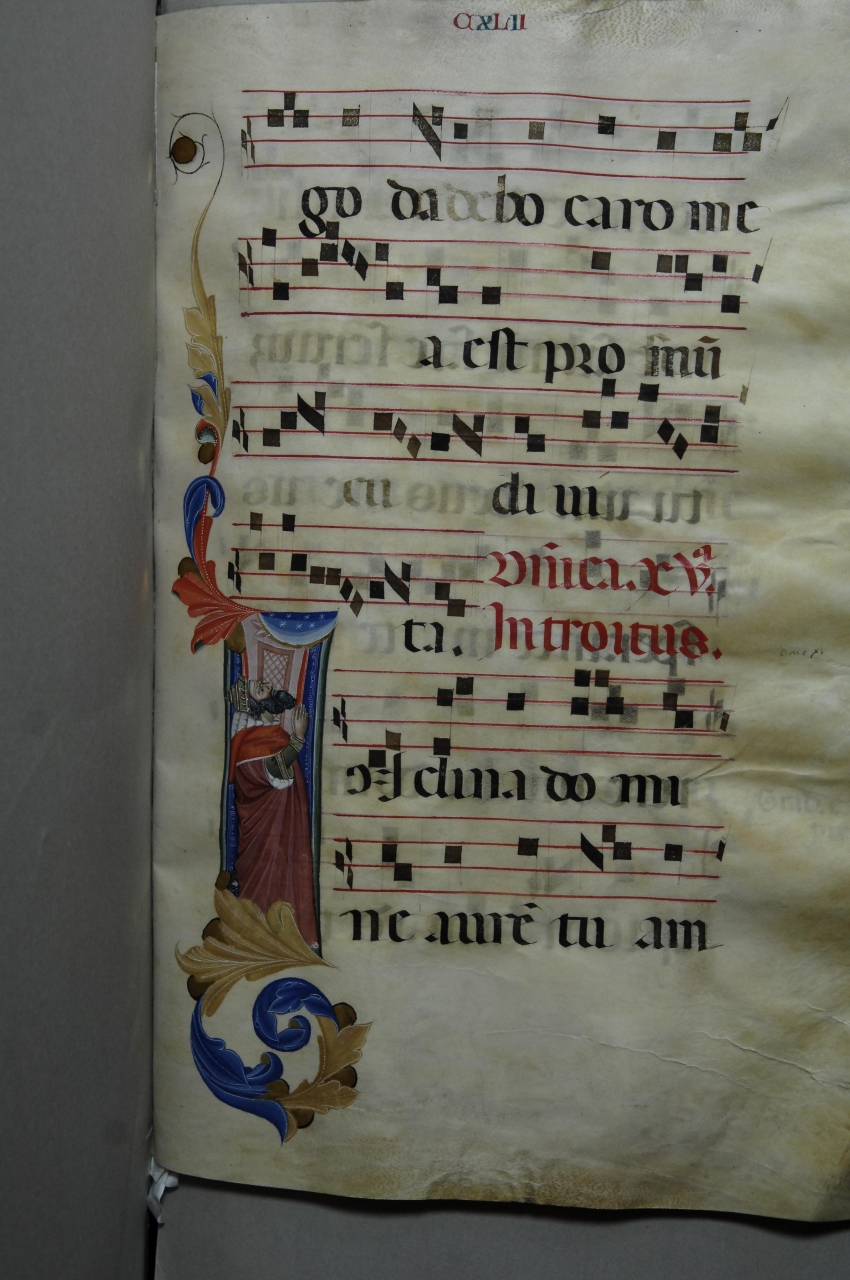 CCXLII
go da debo caro me
a est pro mūdi
cu di ui ta
Dñica. xvª.
ta. Introitus.
Inclina do mi
ne aurē tu am